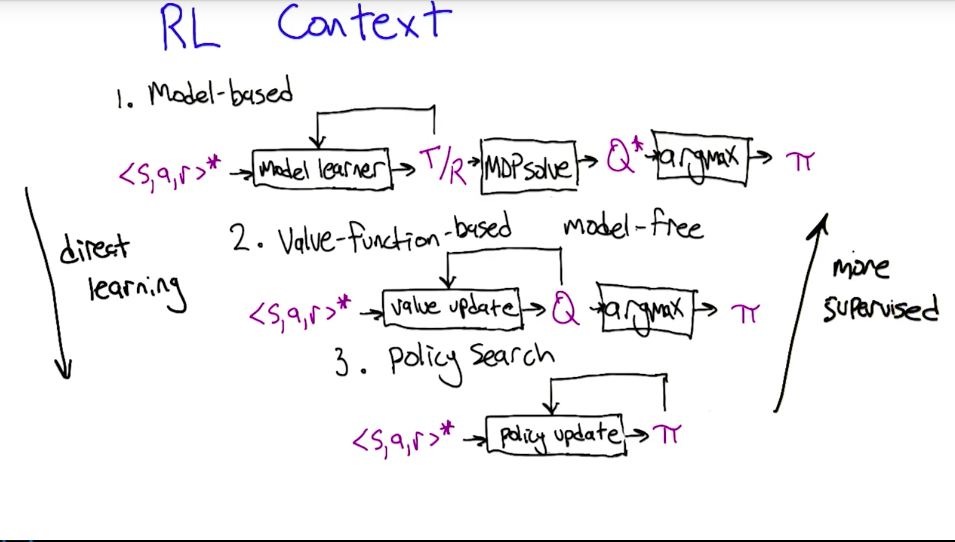 RL Context
1. Model-based
<s,a,r>* → Model learner → T/R → MDP solve → Q* → argmax → π
direct
learning
2. Value-function-based model-free
<s,a,r>* → value update → Q → argmax → π
more
supervised
3. policy search
<s,a,r>* → policy update → π